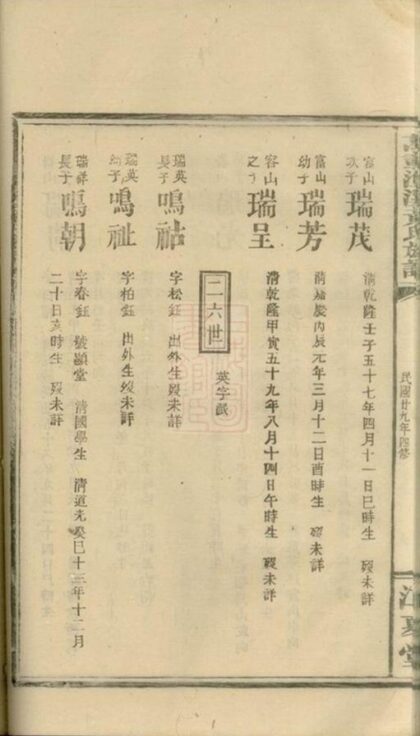 民國廿九年四修
江夏堂
富山次子 瑞茂 清乾隆壬子五十七年四月十一日巳時生 歿未詳
富山幼子 瑞芳 清嘉慶丙辰元年三月十二日酉時生 歿未詳
容山之子 瑞呈 清乾隆甲寅五十九年八月十四日午時生 歿未詳
二六世 英字誠
瑞英長子 鳴祜 字松鈺 出外生歿未詳
瑞英幼子 鳴祉 字柏鈺 出外生歿未詳
瑞祥長子 鳴朝 字春鈺 號顯堂 清國學生 清道光癸巳十三年十二月
二十日亥時生 歿未詳